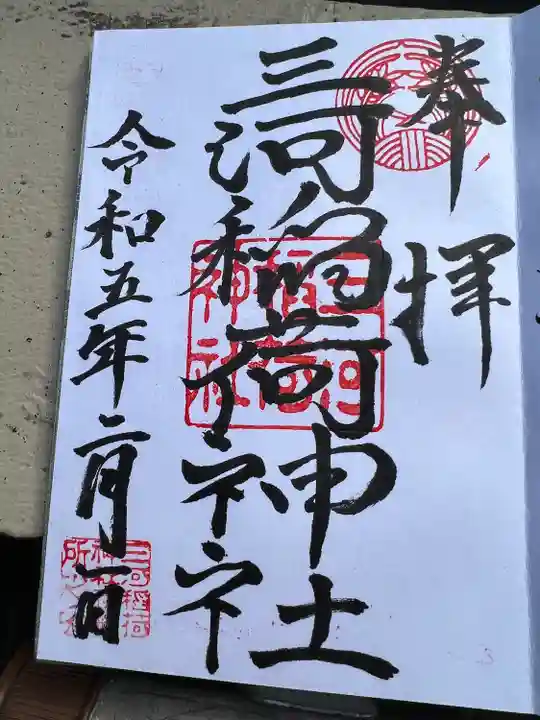 奉拝
三河稲荷神社
三河
稲荷
神社
令和五年二月一日
三河稲荷
神社